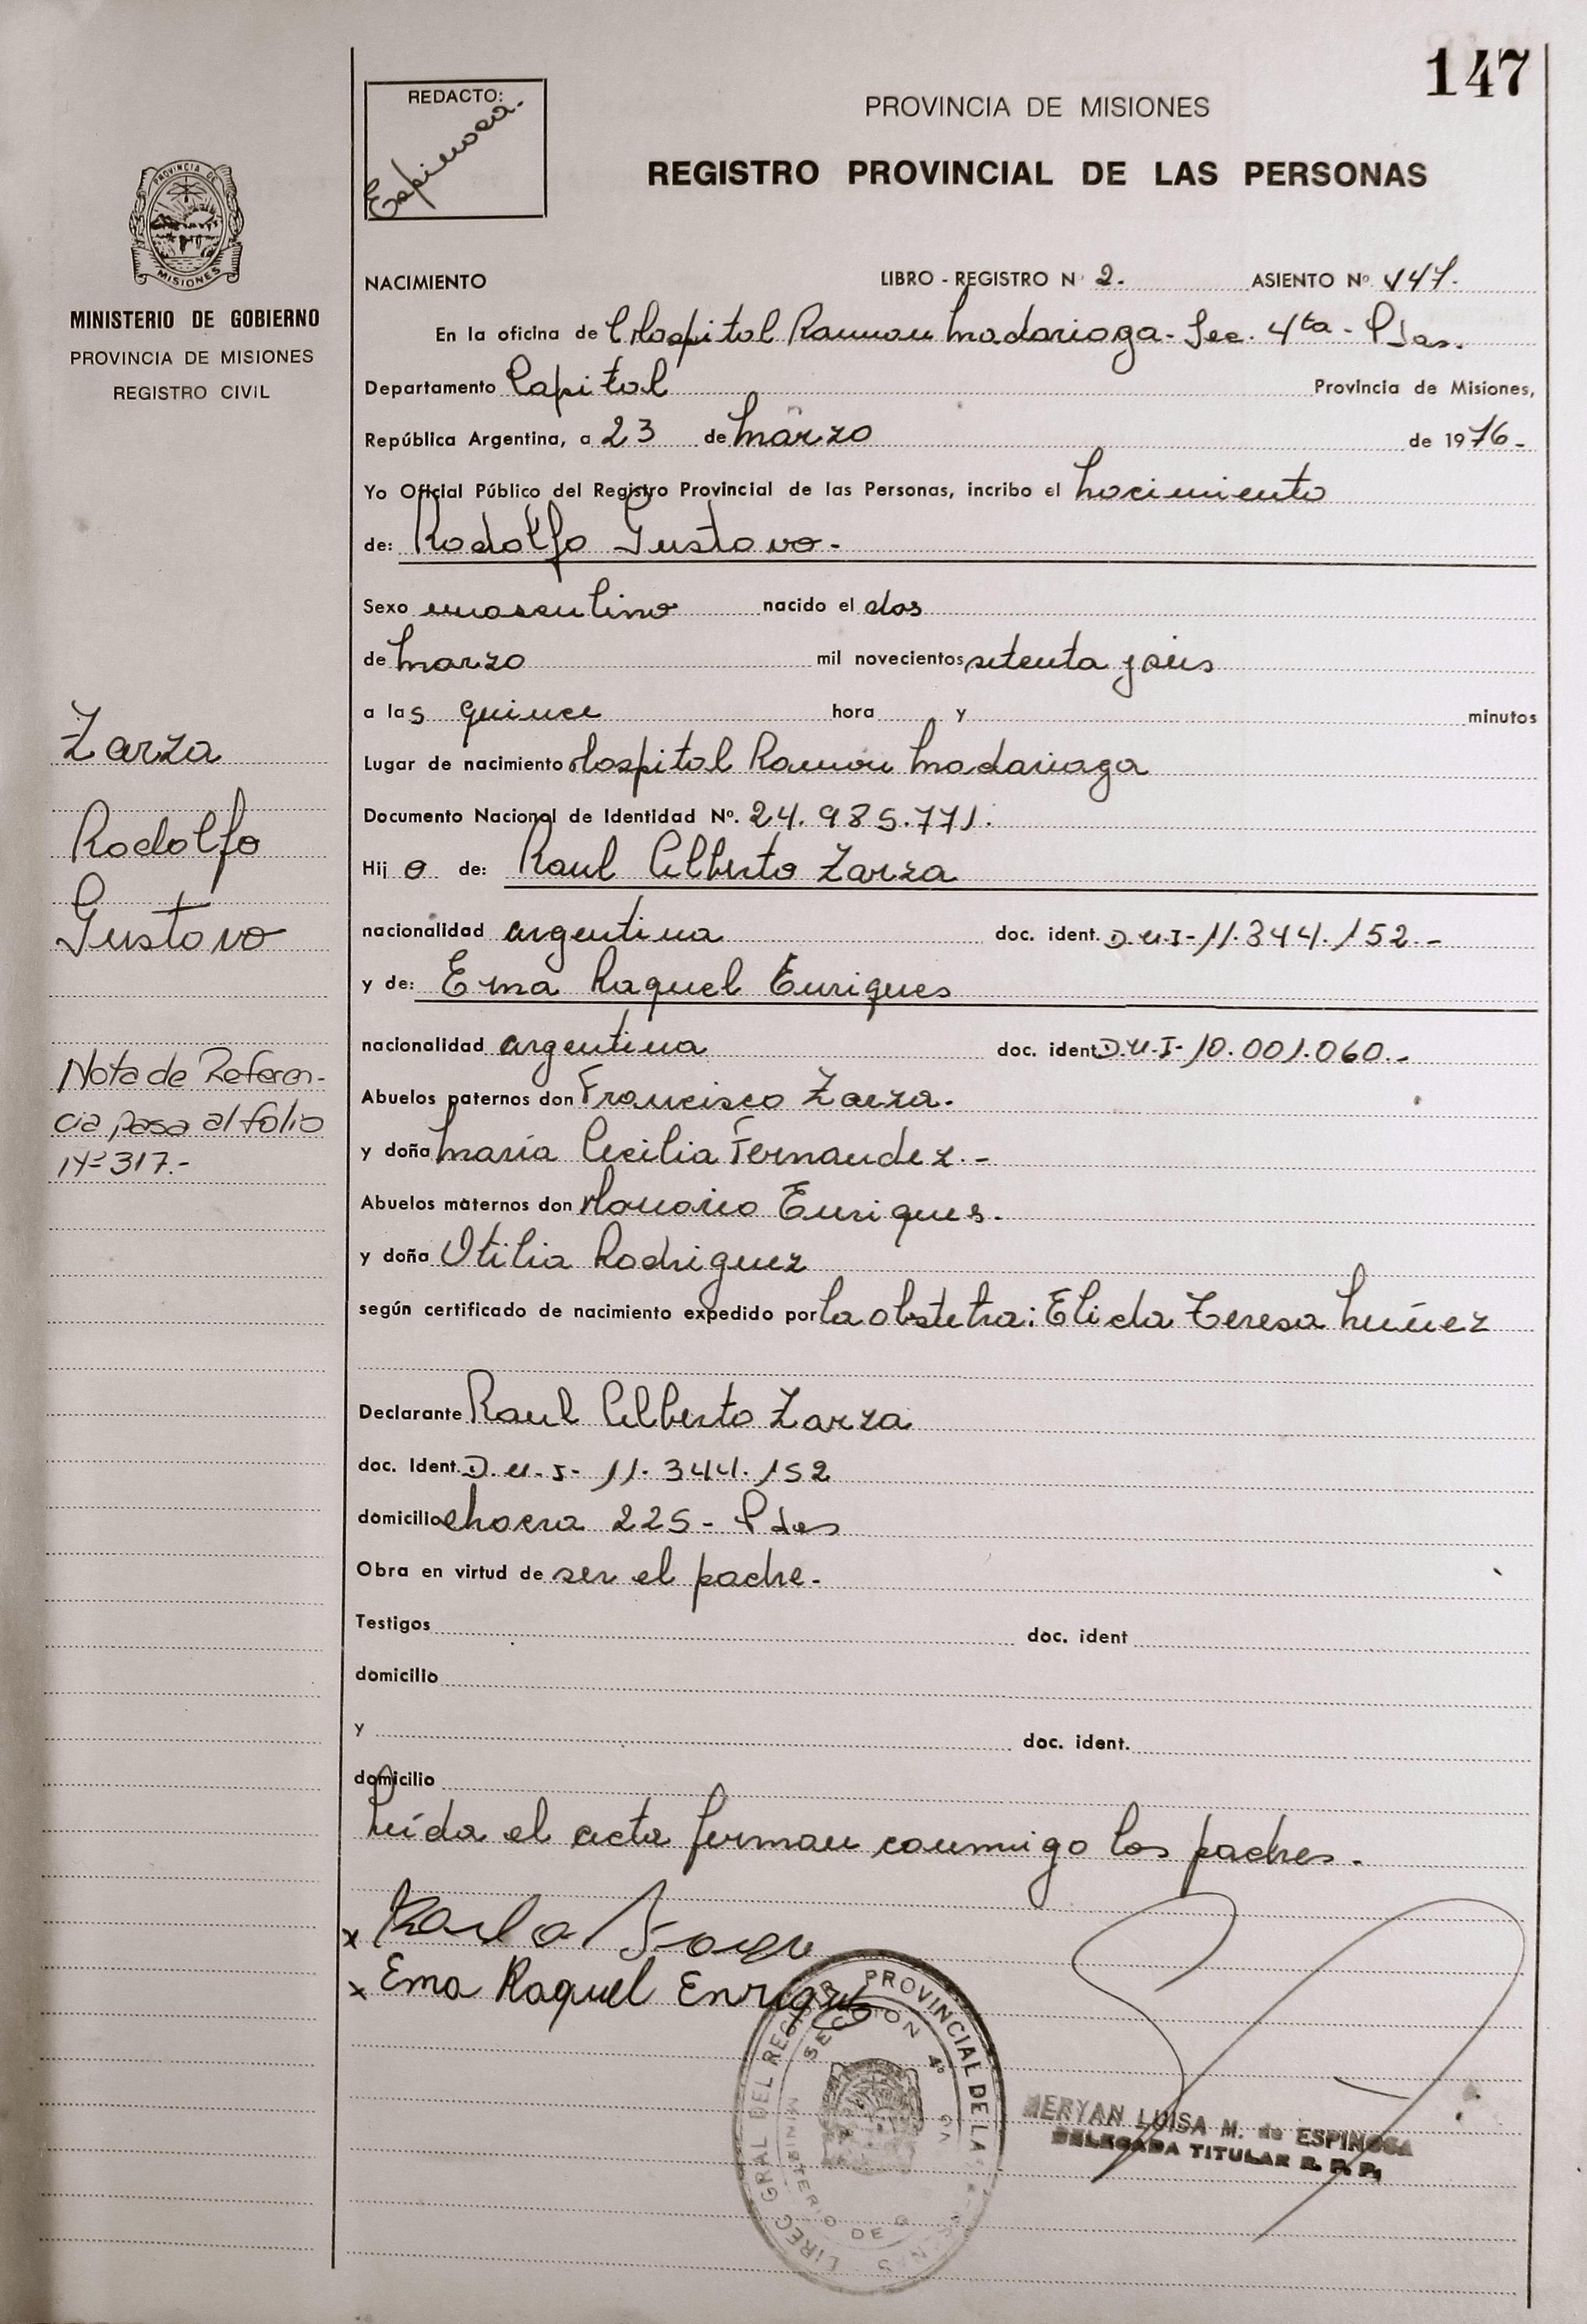 147
REDACTO:
Espinosa.
PROVINCIA DE MISIONES
REGISTRO PROVINCIAL DE LAS PERSONAS
PROVINCIA DE
MISIONES
MINISTERIO DE GOBIERNO
PROVINCIA DE MISIONES
REGISTRO CIVIL
NACIMIENTO LIBRO - REGISTRO Nº 2. ASIENTO Nº 147.
En la oficina de Hospital Ramon Madariaga - Sec. 4ta - Pdas.
Departamento Capital Provincia de Misiones,
República Argentina, a 23 de marzo de 1976-
Yo Oficial Público del Registro Provincial de las Personas, incribo el nacimiento
de: Rodolfo Gustavo.-
Sexo masculino nacido el dos
de marzo mil novecientos setenta y seis
a las quince hora y minutos
Lugar de nacimiento Hospital Ramon Madariaga
Documento Nacional de Identidad Nº. 24.985.771.
Hijo de: Raul Alberto Zarza
nacionalidad argentina doc. ident. D.N.I- 11.344.152.-
y de: Ema Raquel Enriques
nacionalidad argentina doc. ident D.N.I- 10.001.060.-
Abuelos paternos don Francisco Zarza.
y doña María Cecilia Fernandez.-
Abuelos maternos don Honorio Enriques.
y doña Otilia Rodriguez
según certificado de nacimiento expedido por la obstetra: Elida Teresa Nuñez
Declarante Raul Alberto Zarza
doc. Ident. D.N.I- 11.344.152
domicilio chacra 225- Pdas
Obra en virtud de ser el padre.
Testigos doc. ident
domicilio
y doc. ident.
domicilio
Leída el acta firman conmigo los padres.
x
x Ema Raquel Enriquez
DIREC GRAL DEL REGISTR PROVINCIAL DE LA
SECCION 4º
MINISTERIO DE G
MERYAN LUISA M. de ESPINOSA
DELEGADA TITULAR R. P. P.
Zarza
Rodolfo
Gustavo
Nota de Referen-
cia pasa al folio
Nº 317.-